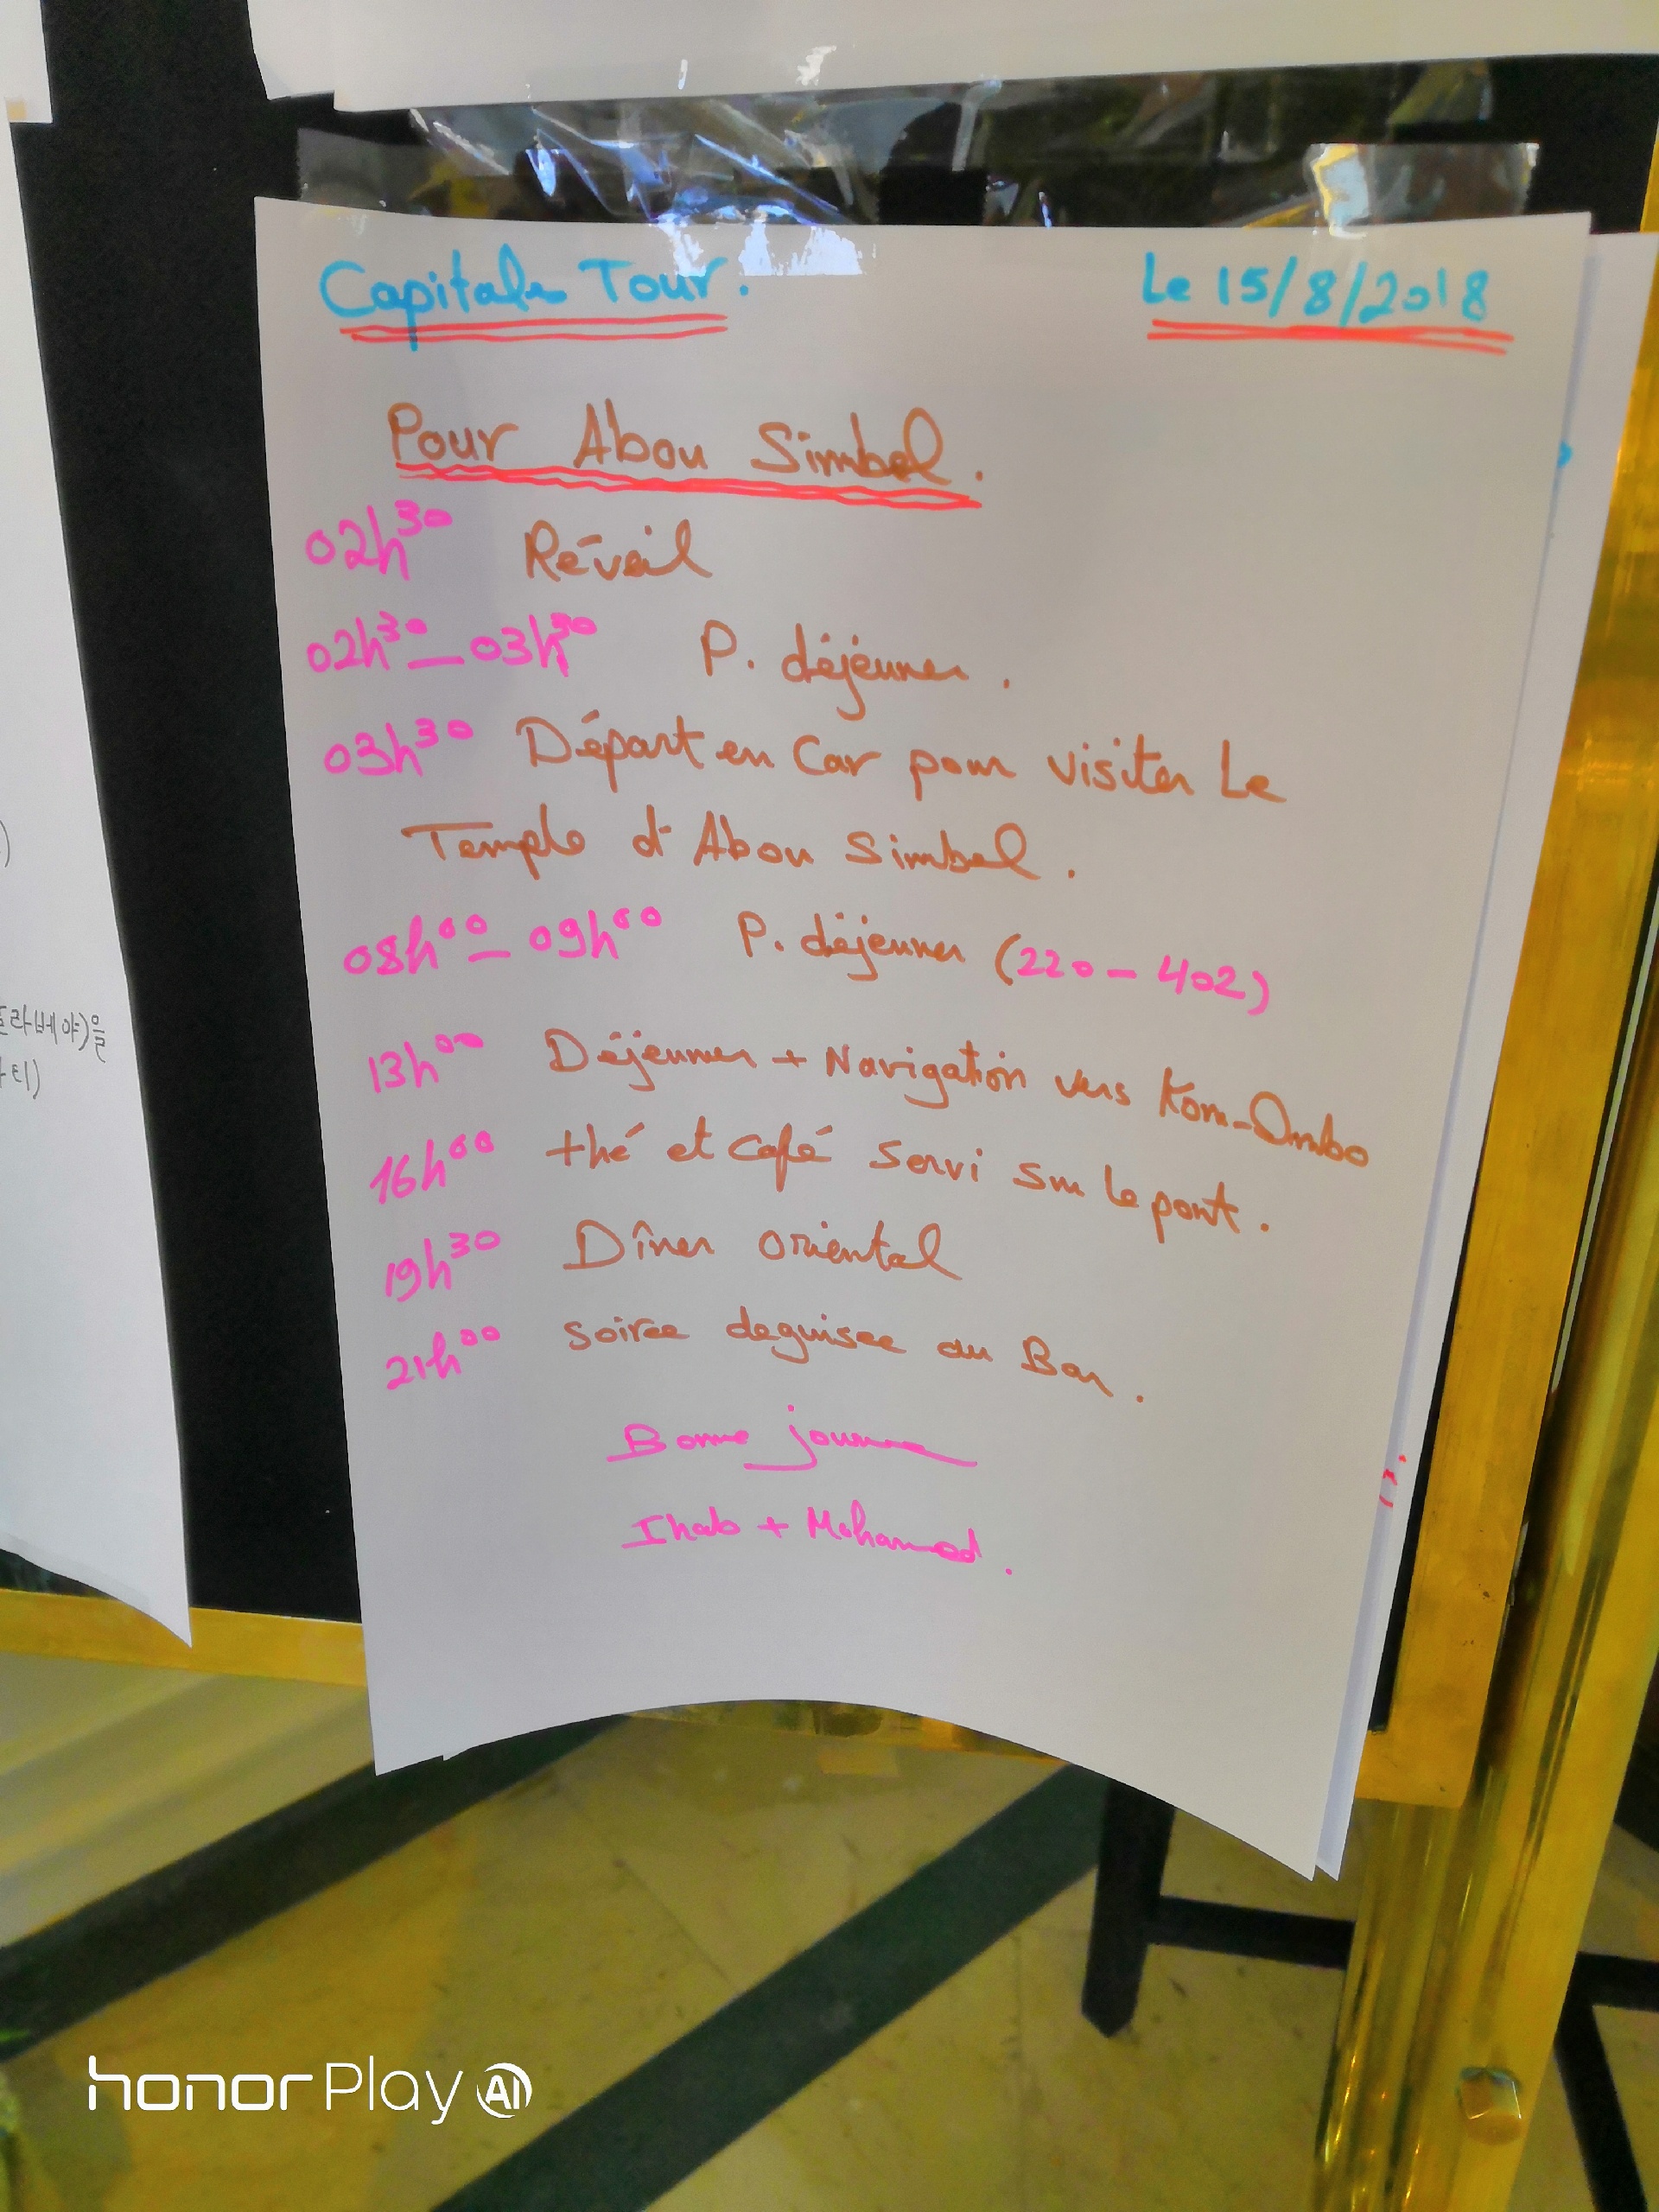 Capitale Tour.
Le 15/8/2018
Pour Abou Simbel.
02h30 Réveil
02h30 – 03h30 P. déjeuner.
03h30 Départ en Car pour visiter Le
Temple d'Abou Simbel.
08h00 – 09h00 P. déjeuner (220 – 402)
13h00 Déjeuner + Navigation vers Kom-Ombo
16h00 thé et Café servi sur Le pont.
19h30 Dîner oriental
21h00 soirée deguisee au Bar.
Bonne journee
Ihab + Mohamed.
라베야)을
티)
honor Play AI